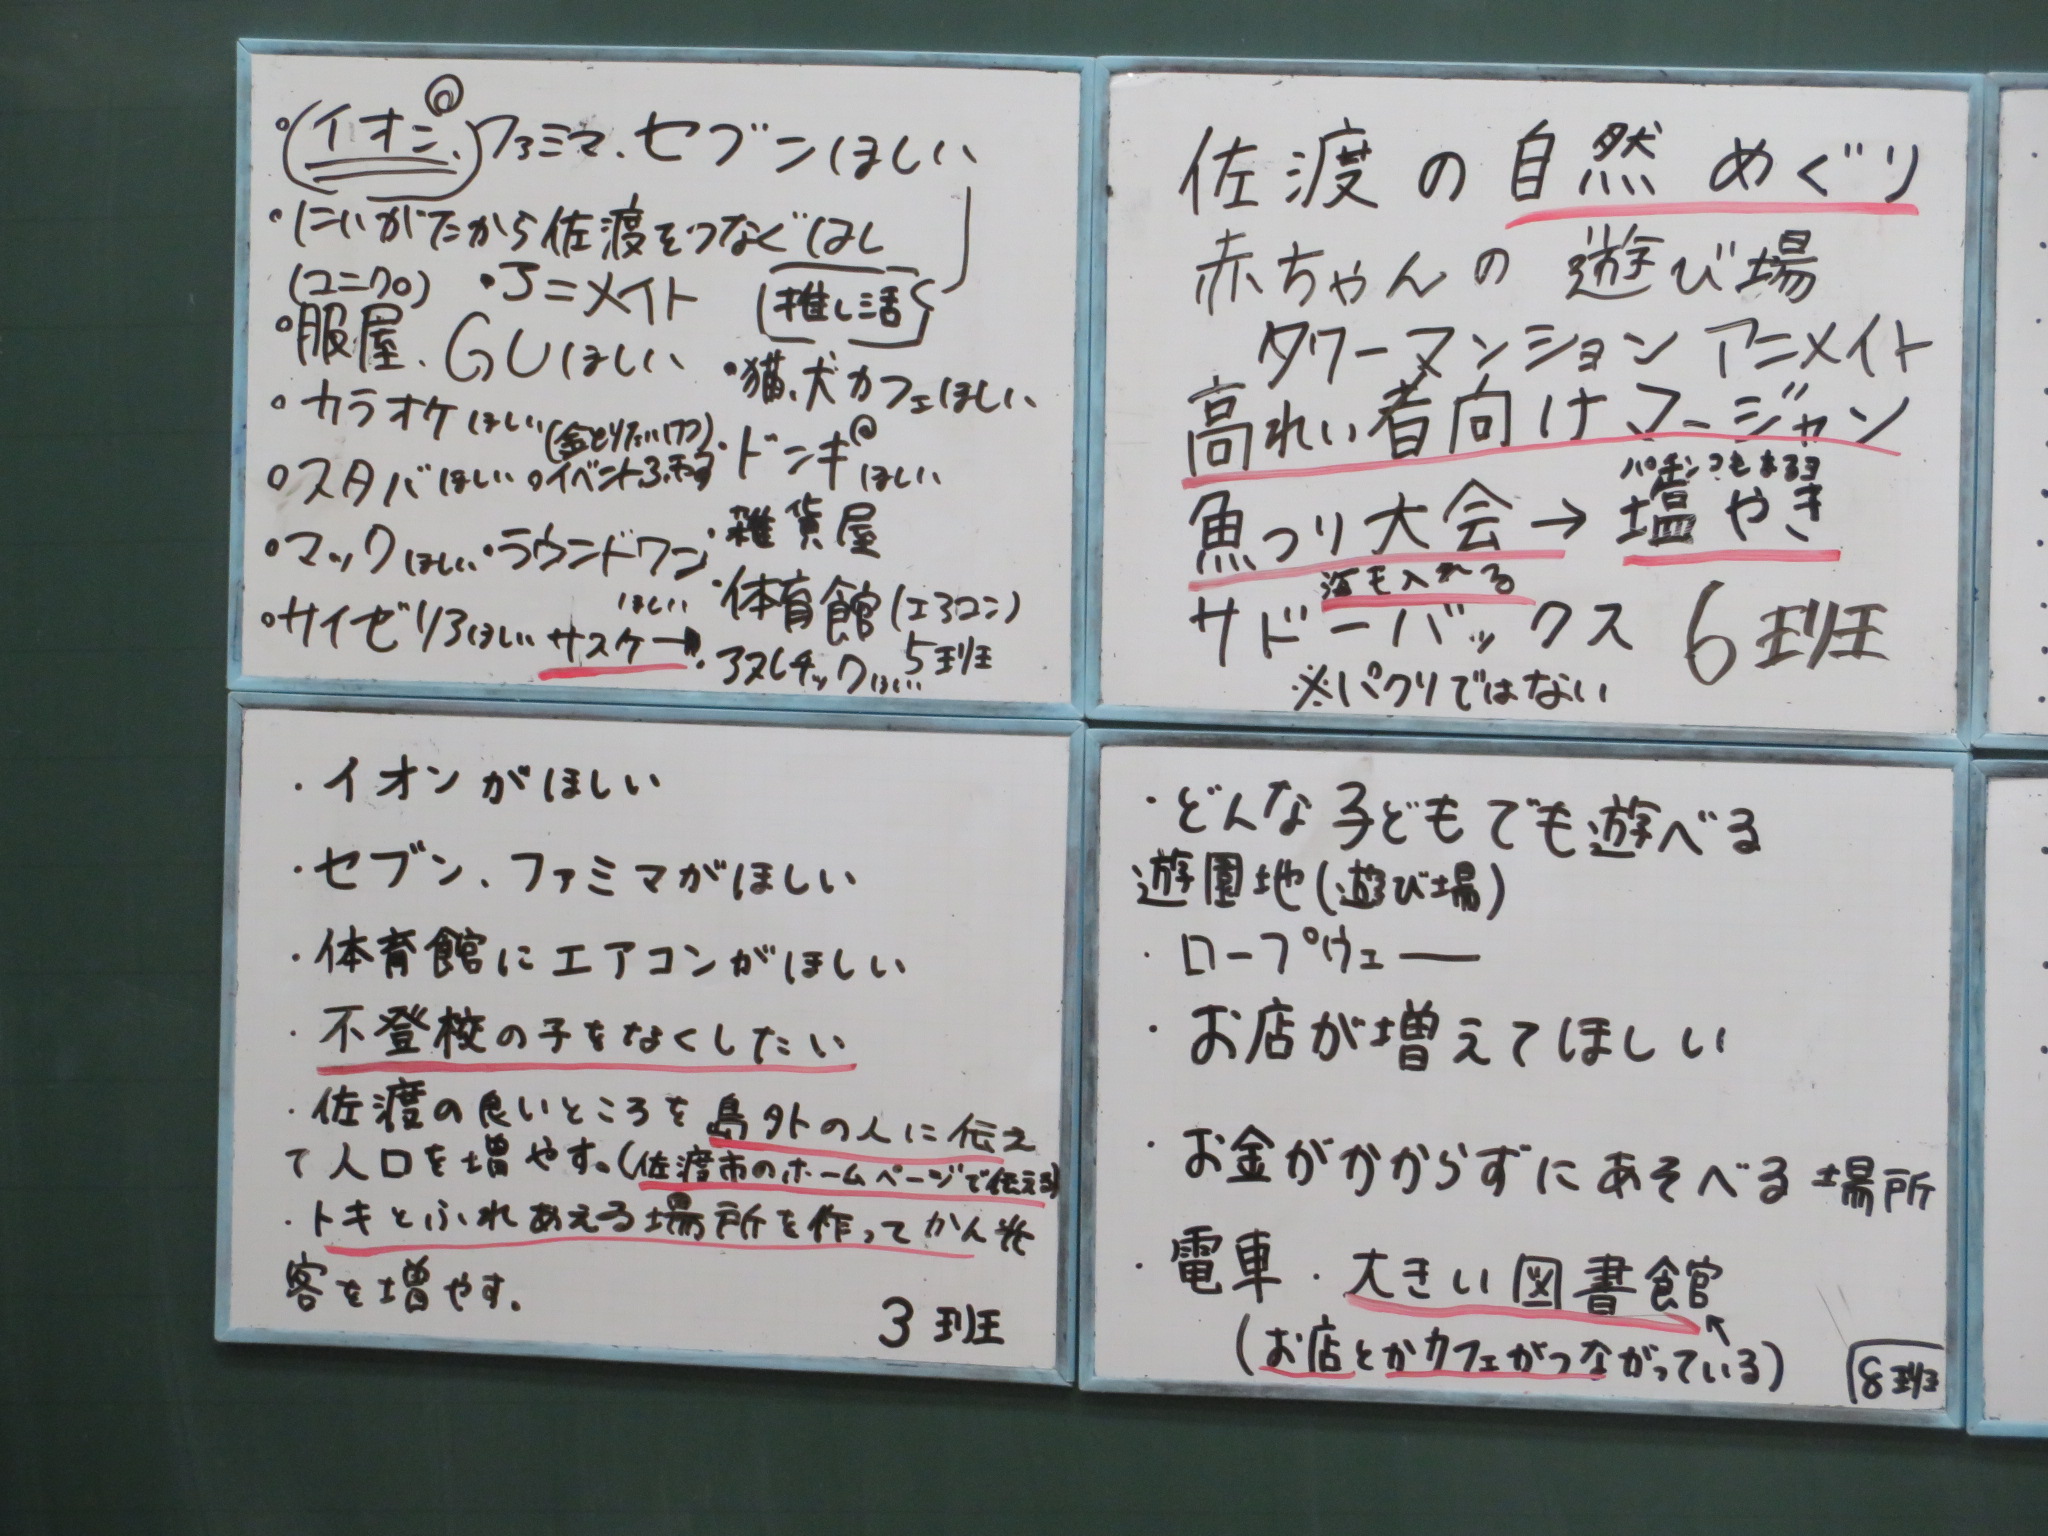 ・(イオン、)ファミマ、セブンほしい
・にいがたから佐渡をつなぐはし
(ユニクロ)
・アニメイト
推し活
・服屋、GUほしい
・猫、犬カフェほしい
・カラオケほしい
・スタバほしい
・ドンキほしい
・マックほしい・ラウンドワン
ほしい
・雑貨屋
・体育館(エアコン)
・サイゼリアほしい サスケ→
・アスレチックほしい
5班
佐渡の自然めぐり
赤ちゃんの遊び場
タワーマンション アニメイト
高れい者向けマージャン
パチンコもあるヨ
魚つり大会→塩やき
海も入れる
サドーバックス
6班
※パクリではない
・イオンがほしい
・セブン、ファミマがほしい
・体育館にエアコンがほしい
・不登校の子をなくしたい
・佐渡の良いところを島外の人に伝え
て人口を増やす。(佐渡市のホームページで伝える)
・トキとふれあえる場所を作ってかん光
客を増やす。
3班
・どんな子どもでも遊べる
遊園地(遊び場)
・ロープウェー
・お店が増えてほしい
・お金がかからずにあそべる場所
・電車・大きい図書館
(お店とかカフェがつながっている)
8班